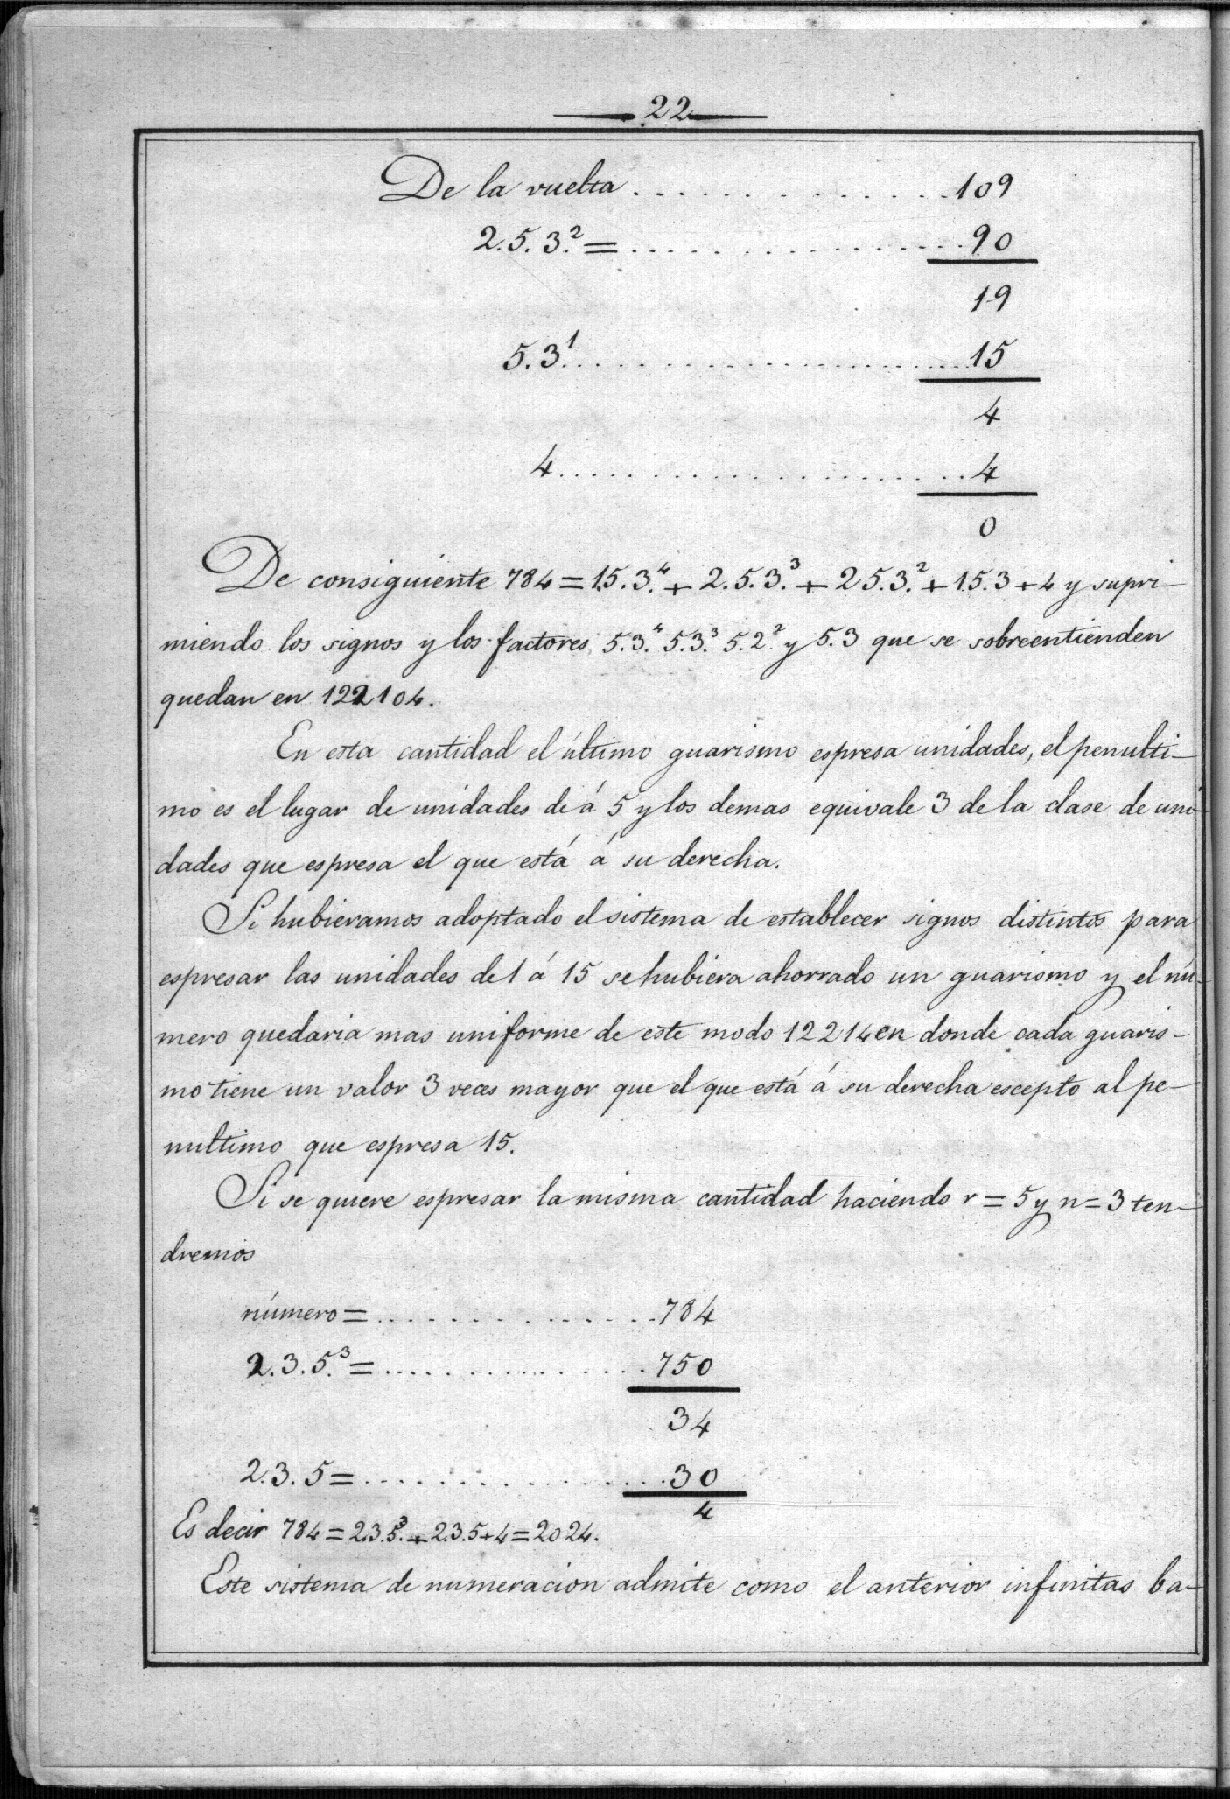 22
De la vuelta . . . . . . . . . . . . . . 109
2.5.3.² = . . . . . . . . . . . . . . . . 90
19
5.3.¹ . . . . . . . . . . . . . . . . . . . 15
4
4 . . . . . . . . . . . . . . . . . . . . 4
0
De consiguiente 784 = 1.5.3.⁴ + 2.5.3.³ + 2 5.3.² + 1.5.3 + 4 y supri-
miendo los signos y los factores, 5.3.⁴ 5.3.³ 5.2.² y 5.3 que se sobreentienden
quedan en 122104.
En esta cantidad el último guarismo espresa unidades, el penulti-
mo es el lugar de unidades de á 5 y los demas equivale 3 de la clase de uni
dades que espresa el que está á su derecha.
Si hubieramos adoptado el sistema de establecer signos distintos para
espresar las unidades de 1 á 15 se hubiera ahorrado un guarismo y el nú-
mero quedaria mas uniforme de este modo 12214 en donde cada guaris-
mo tiene un valor 3 veces mayor que el que está á su derecha escepto al pe-
nultimo que espresa 15.
Si se quiere espresar la misma cantidad haciendo r = 5 y n = 3 ten-
dremos
número = . . . . . . . . . . . . . . 784
2.3.5.³ = . . . . . . . . . . . . . . 750
34
2.3.5 = . . . . . . . . . . . . . . . 30
4
Es decir 784 = 2.3.5.³ + 2.3.5 + 4 = 2024.
Este sistema de numeracion admite como el anterior infinitas ba-